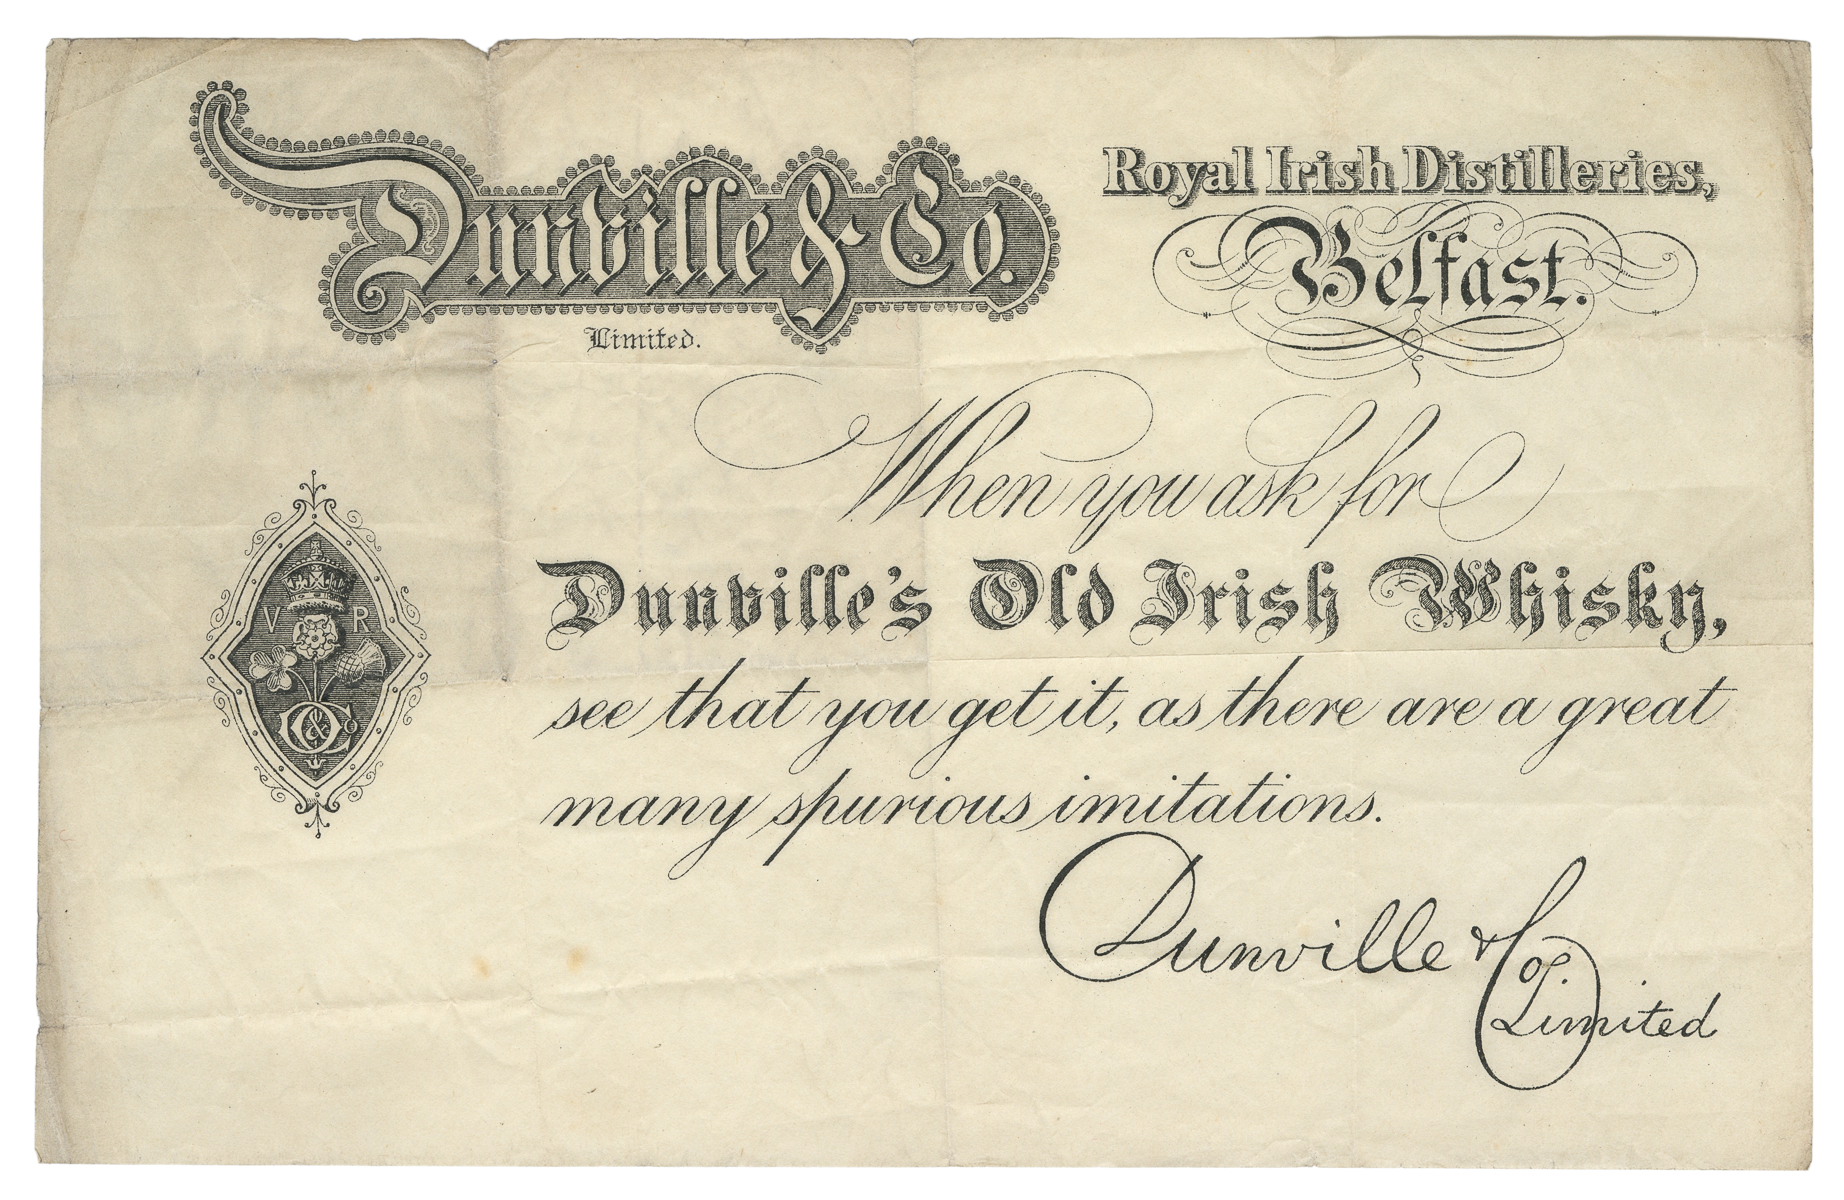 Dunville & Co.
Limited.
Royal Irish Distilleries,
Belfast.
When you ask for
Dunville's Old Irish Whisky,
see that you get it, as there are a great
many spurious imitations.
V R
D & Co
Dunville & Co.
Limited